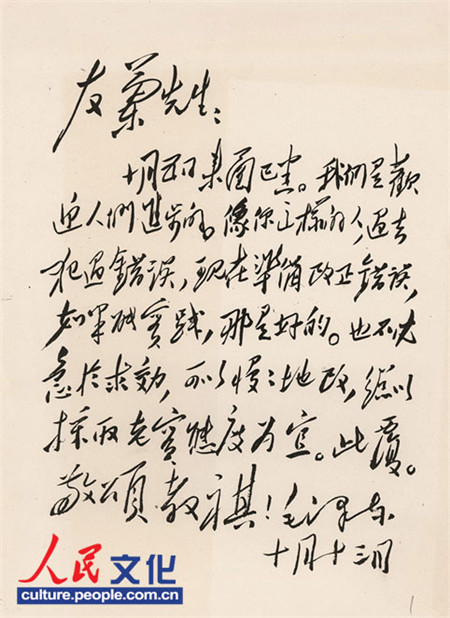 友蘭先生：
十月五日来函已悉。我們是歡
迎人們進步的。像你這樣的人，過去
犯過錯誤，現在準備改正錯誤，
如果能實踐，那是好的。也不必
急於求効，可以慢〻地改，總以
採取老實態度为宜。此覆。
敬頌教祺！毛泽东
十月十三日
人民文化
culture.people.com.cn
1